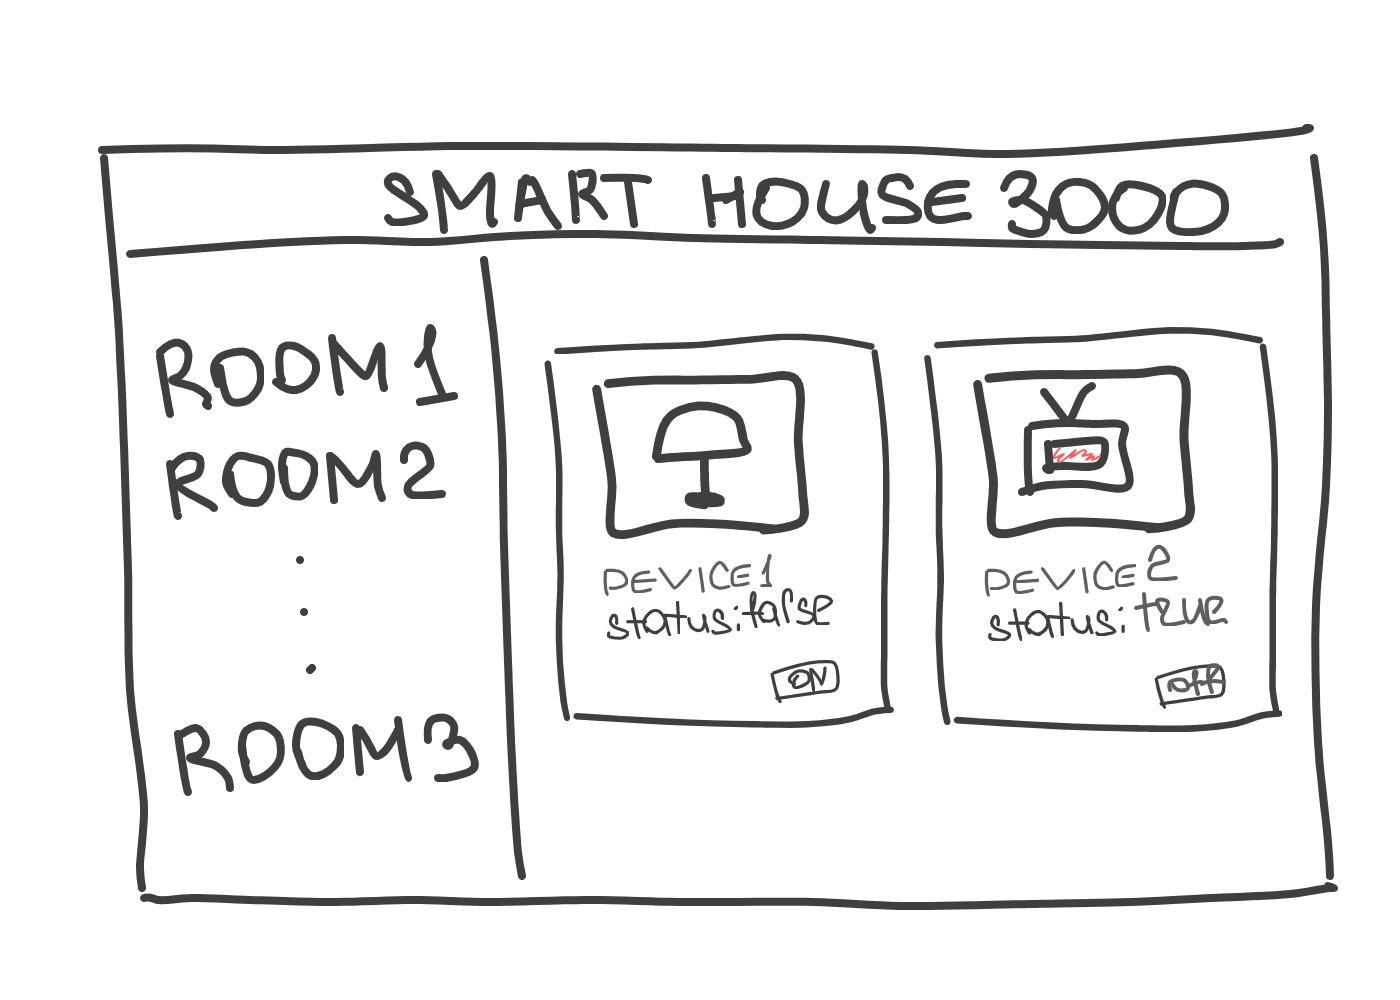 SMART HOUSE 3000
ROOM 1
ROOM 2
ROOM 3
DEVICE 1
status: false
ON
DEVICE 2
status: true
OFF